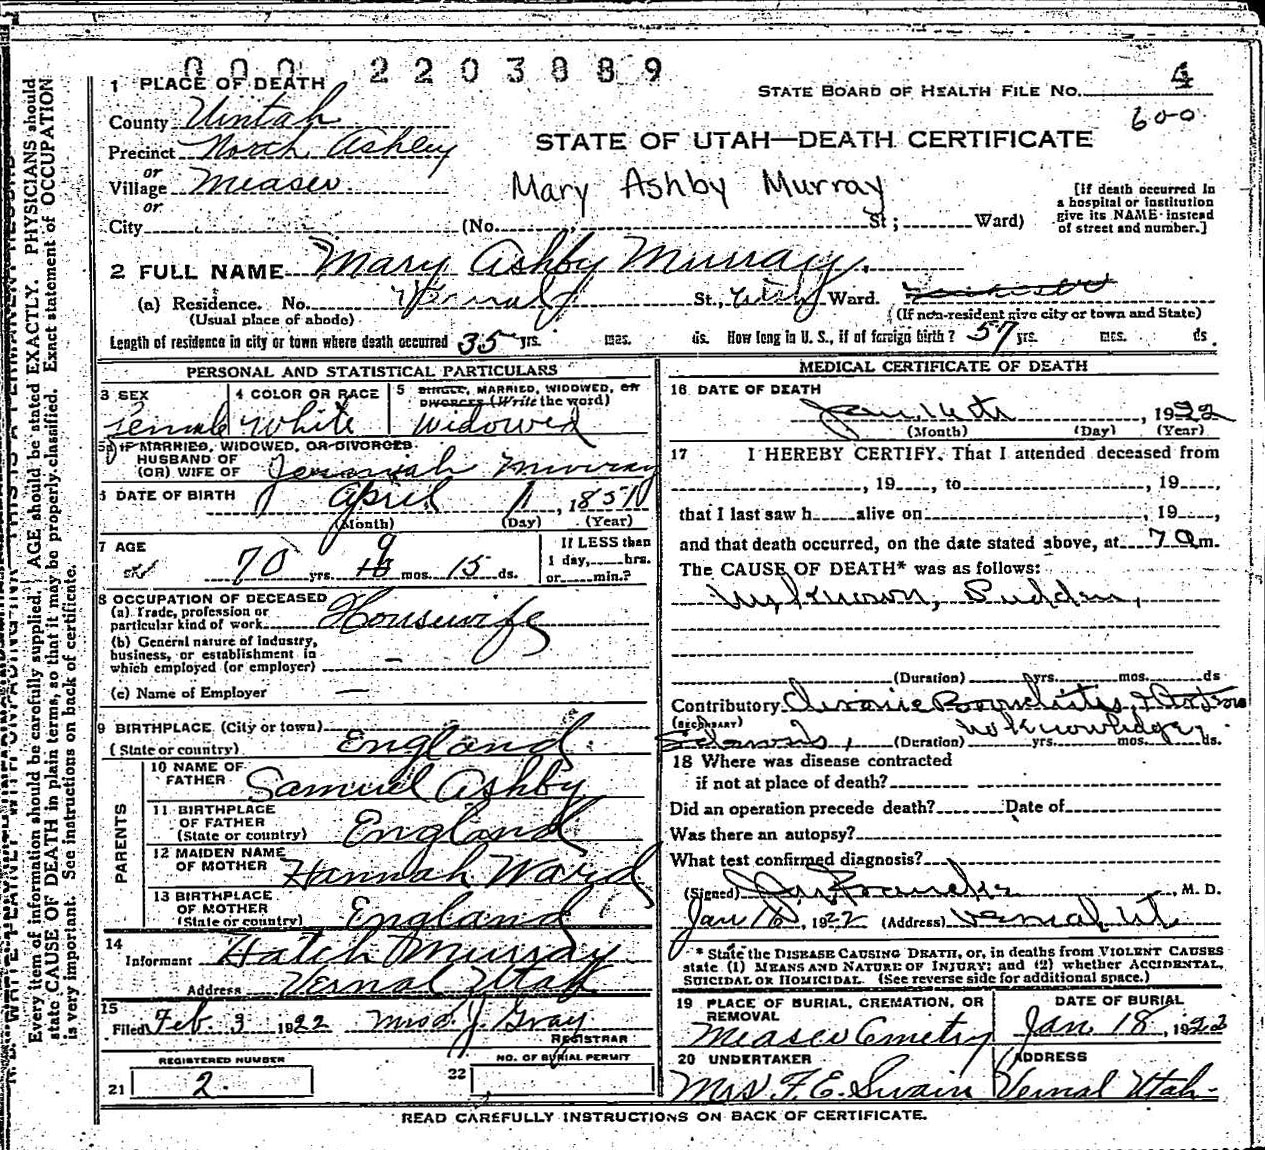 000 2203889
1 PLACE OF DEATH
STATE BOARD OF HEALTH FILE No. 4
600
County Uintah
Precinct North Ashley
or
Village Measer
or
City (No. St; Ward)
STATE OF UTAH—DEATH CERTIFICATE
Mary Ashby Murray
[If death occurred in
a hospital or institution
give its NAME instead
of street and number.]
2 FULL NAME Mary Ashby Murray.
(a) Residence. No. Vernal St., Ward.
(Usual place of abode) (If non-resident give city or town and State)
Length of residence in city or town where death occurred 35 yrs. mos. ds. How long in U. S., if of foreign birth? 57 yrs. mos. ds.
PERSONAL AND STATISTICAL PARTICULARS
3 SEX Female
4 COLOR OR RACE White
5 SINGLE, MARRIED, WIDOWED, OR
DIVORCED (Write the word)
Widowed
5a IF MARRIED, WIDOWED, OR DIVORCED
HUSBAND OF
(OR) WIFE OF Jeremiah Murray
6 DATE OF BIRTH April 1, 1851
(Month) (Day) (Year)
7 AGE
70 yrs. 9 mos. 15 ds.
If LESS than
1 day, hrs.
or min.?
8 OCCUPATION OF DECEASED
(a) Trade, profession or
particular kind of work Housewife
(b) General nature of industry,
business, or establishment in
which employed (or employer) —
(c) Name of Employer —
9 BIRTHPLACE (City or town)
(State or country) England
PARENTS
10 NAME OF
FATHER Samuel Ashby
11 BIRTHPLACE
OF FATHER
(State or country) England
12 MAIDEN NAME
OF MOTHER Hannah Ward
13 BIRTHPLACE
OF MOTHER
(State or country) England
14
Informant Hatch Murray
Address Vernal Utah
15
Filed Feb. 3 1922 Mrs J. Gray
REGISTRAR
REGISTERED NUMBER
21 2.
NO. OF BURIAL PERMIT
22
MEDICAL CERTIFICATE OF DEATH
16 DATE OF DEATH
Jan. 16th, 1922
(Month) (Day) (Year)
17 I HEREBY CERTIFY. That I attended deceased from
, 19 , to , 19 ,
that I last saw h alive on , 19 ,
and that death occurred, on the date stated above, at 7 a m.
The CAUSE OF DEATH* was as follows:
Unknown, Sudden,
(Duration) yrs. mos. ds
Contributory Chronic
(SECONDARY)
(Duration) yrs. mos. ds.
18 Where was disease contracted
if not at place of death?
Did an operation precede death? Date of
Was there an autopsy?
What test confirmed diagnosis?
(Signed) , M. D.
Jan 16, 1922 (Address) Vernal Ut
* State the DISEASE CAUSING DEATH, or, in deaths from VIOLENT CAUSES
state (1) MEANS AND NATURE OF INJURY; and (2) whether ACCIDENTAL,
SUICIDAL OR HOMICIDAL. (See reverse side for additional space.)
19 PLACE OF BURIAL, CREMATION, OR
REMOVAL
Measer Cemetry
DATE OF BURIAL
Jan. 18, 1922
20 UNDERTAKER
Mrs F. E. Swain
ADDRESS
Vernal Utah
READ CAREFULLY INSTRUCTIONS ON BACK OF CERTIFICATE.
Every item of information should be carefully supplied. AGE should be stated EXACTLY. PHYSICIANS should
state CAUSE OF DEATH in plain terms, so that it may be properly classified. Exact statement of OCCUPATION
is very important. See instructions on back of certificate.